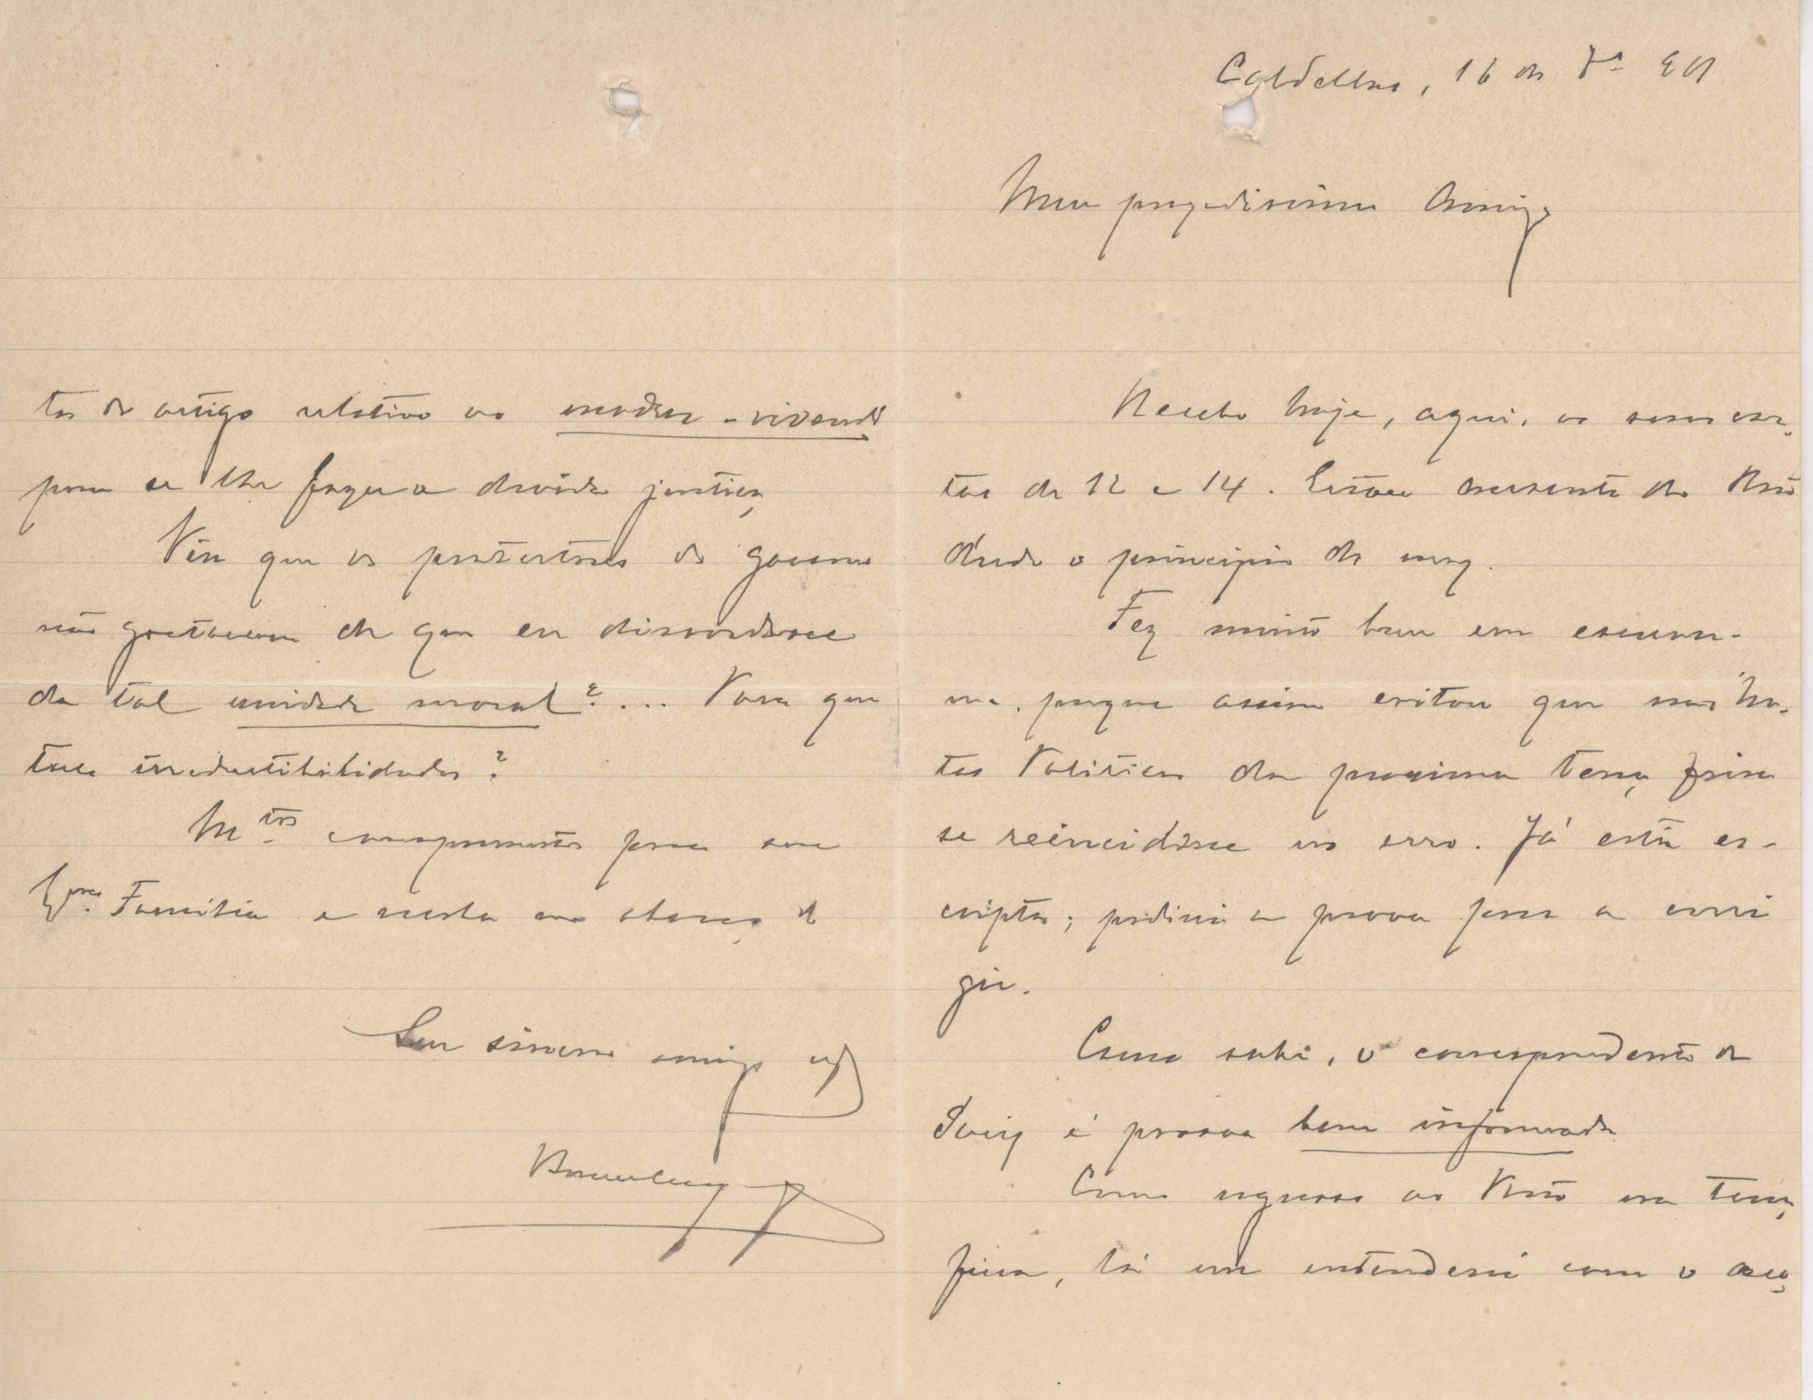 Caldellas, 16 de 7º
Meu presadissimo Amigo
Recebo hoje, aqui, as suas car-
tas de 12 e 14. Estou ausente do Porto
desde o principio do mez.
Fez muito bem em escrever-
me, porque assim evitou que nas No-
tas Politicas da proxima terça feira
se reincidisse no erro. Já está es-
cripta; pedirei a prova para a corri
gir.
Como sabe, o correspondente de
é pessoa bem informada.
Como regresso ao Porto na terça
feira, lá me entenderei com o
tor do artigo relativo ao modus-vivendi
para se lhe fazer a devida justiça
Viu que os protestos do governo
não gostaram de que eu discordasse
da tal unidade moral?... Para que
taes irreductibilidades?
M.tos cumprimentos para sua
Ex.ma Familia e receba um abraço do
Seu sincero amigo